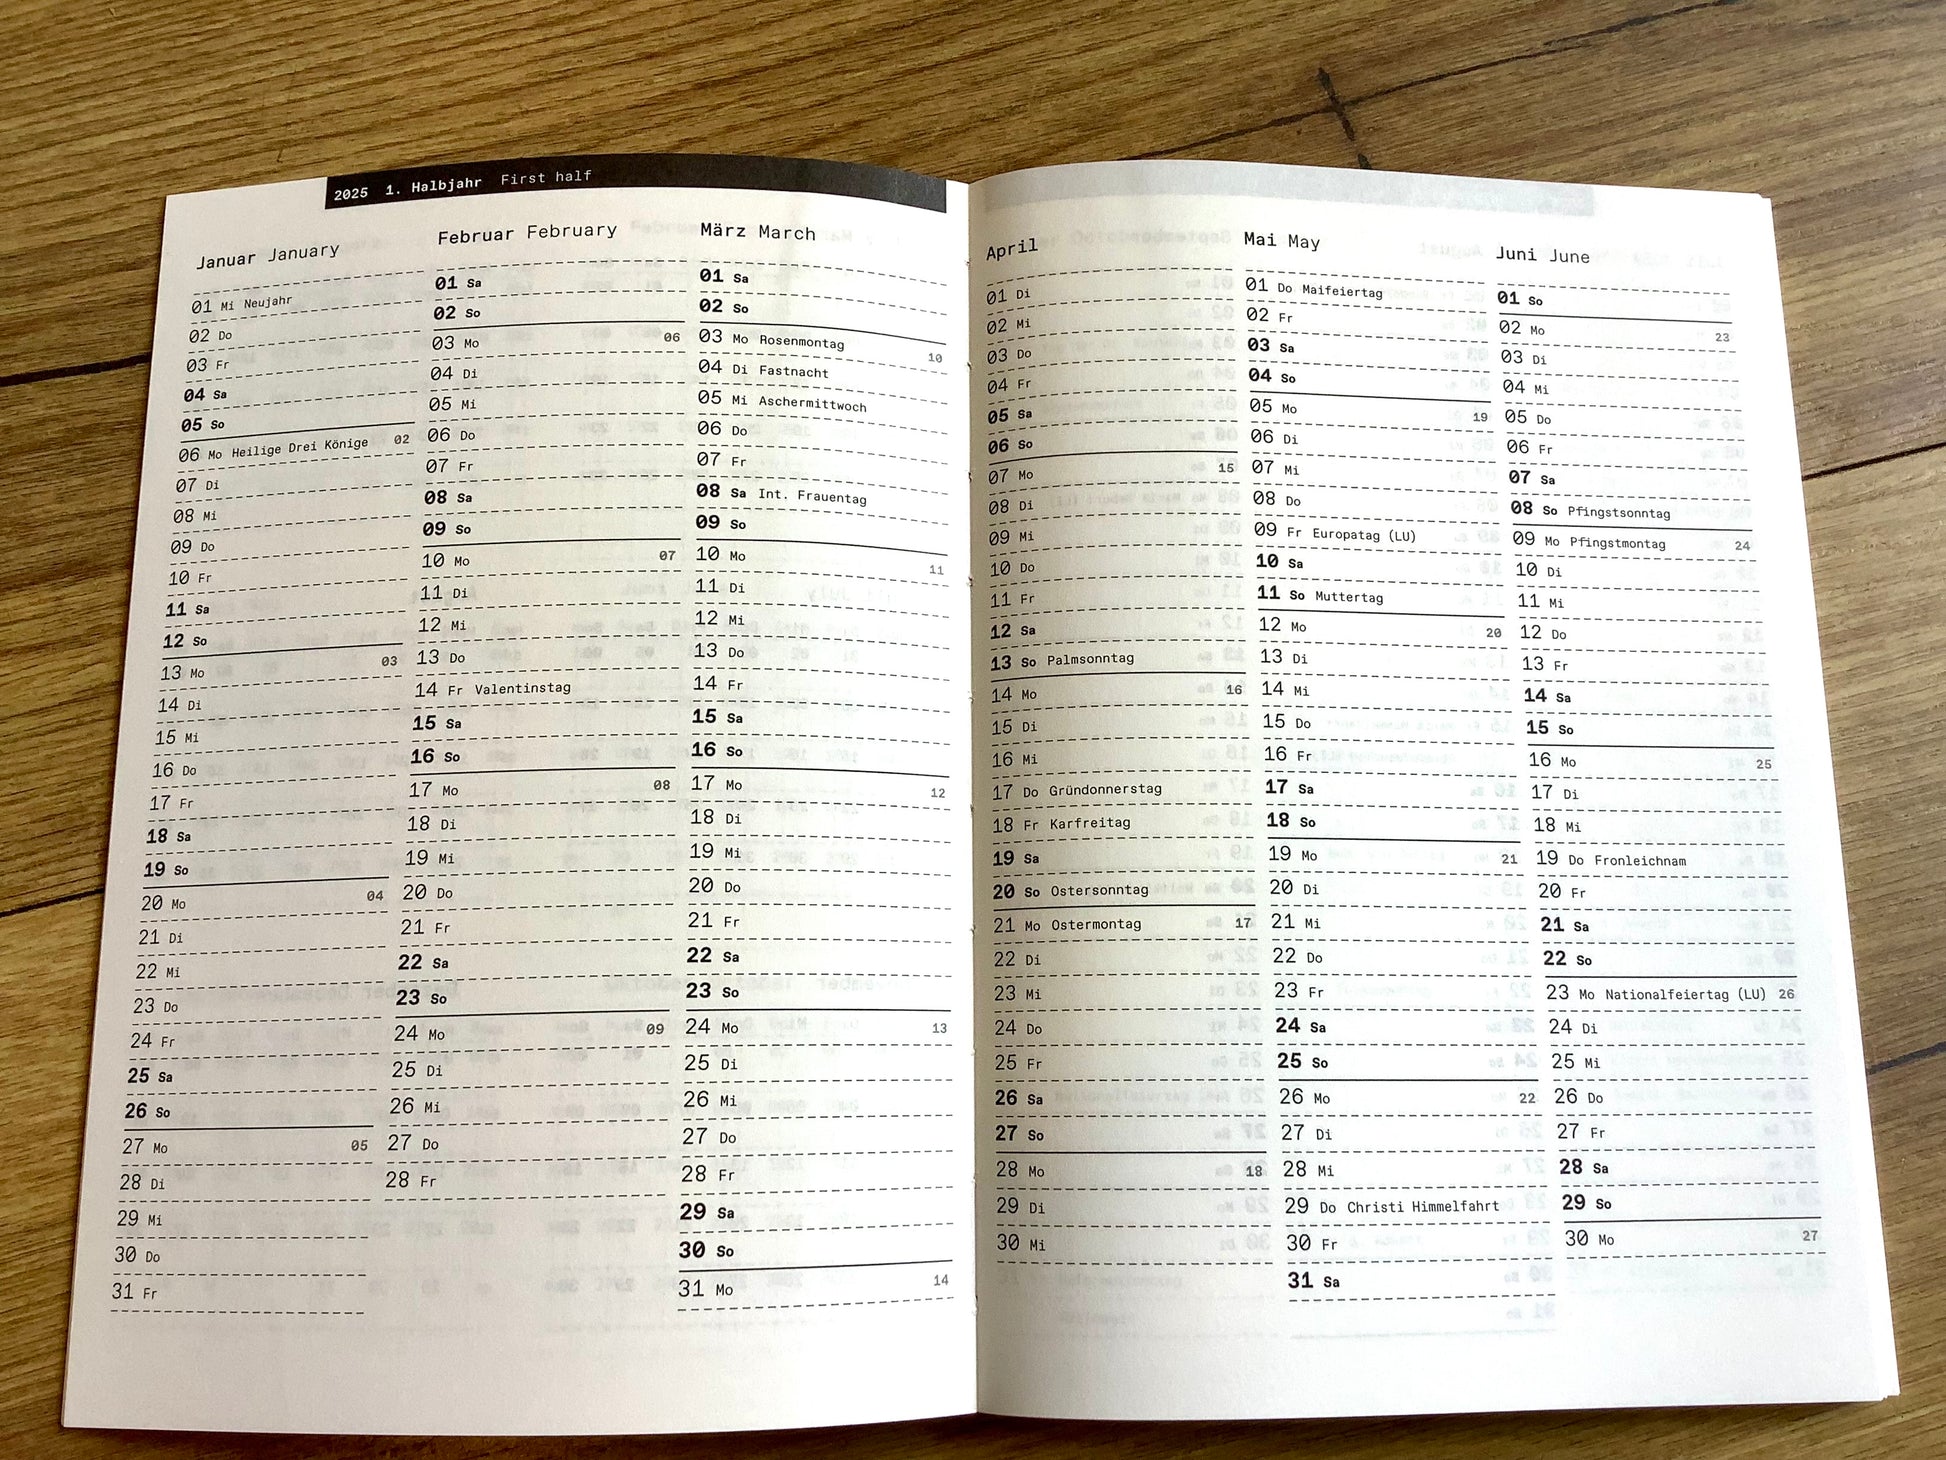 2025 1. Halbjahr First half
Januar January
01 Mi Neujahr
02 Do
03 Fr
04 Sa
05 So
06 Mo Heilige Drei Könige 02
07 Di
08 Mi
09 Do
10 Fr
11 Sa
12 So
13 Mo 03
14 Di
15 Mi
16 Do
17 Fr
18 Sa
19 So
20 Mo 04
21 Di
22 Mi
23 Do
24 Fr
25 Sa
26 So
27 Mo 05
28 Di
29 Mi
30 Do
31 Fr
Februar February
01 Sa
02 So
03 Mo 06
04 Di
05 Mi
06 Do
07 Fr
08 Sa
09 So
10 Mo 07
11 Di
12 Mi
13 Do
14 Fr Valentinstag
15 Sa
16 So
17 Mo 08
18 Di
19 Mi
20 Do
21 Fr
22 Sa
23 So
24 Mo 09
25 Di
26 Mi
27 Do
28 Fr
März March
01 Sa
02 So
03 Mo Rosenmontag 10
04 Di Fastnacht
05 Mi Aschermittwoch
06 Do
07 Fr
08 Sa Int. Frauentag
09 So
10 Mo 11
11 Di
12 Mi
13 Do
14 Fr
15 Sa
16 So
17 Mo 12
18 Di
19 Mi
20 Do
21 Fr
22 Sa
23 So
24 Mo 13
25 Di
26 Mi
27 Do
28 Fr
29 Sa
30 So
31 Mo 14
April
01 Di
02 Mi
03 Do
04 Fr
05 Sa
06 So
07 Mo 15
08 Di
09 Mi
10 Do
11 Fr
12 Sa
13 So Palmsonntag
14 Mo 16
15 Di
16 Mi
17 Do Gründonnerstag
18 Fr Karfreitag
19 Sa
20 So Ostersonntag
21 Mo Ostermontag 17
22 Di
23 Mi
24 Do
25 Fr
26 Sa
27 So
28 Mo 18
29 Di
30 Mi
Mai May
01 Do Maifeiertag
02 Fr
03 Sa
04 So
05 Mo 19
06 Di
07 Mi
08 Do
09 Fr Europatag (LU)
10 Sa
11 So Muttertag
12 Mo 20
13 Di
14 Mi
15 Do
16 Fr
17 Sa
18 So
19 Mo 21
20 Di
21 Mi
22 Do
23 Fr
24 Sa
25 So
26 Mo 22
27 Di
28 Mi
29 Do Christi Himmelfahrt
30 Fr
31 Sa
Juni June
01 So
02 Mo 23
03 Di
04 Mi
05 Do
06 Fr
07 Sa
08 So Pfingstsonntag
09 Mo Pfingstmontag 24
10 Di
11 Mi
12 Do
13 Fr
14 Sa
15 So
16 Mo 25
17 Di
18 Mi
19 Do Fronleichnam
20 Fr
21 Sa
22 So
23 Mo Nationalfeiertag (LU) 26
24 Di
25 Mi
26 Do
27 Fr
28 Sa
29 So
30 Mo 27